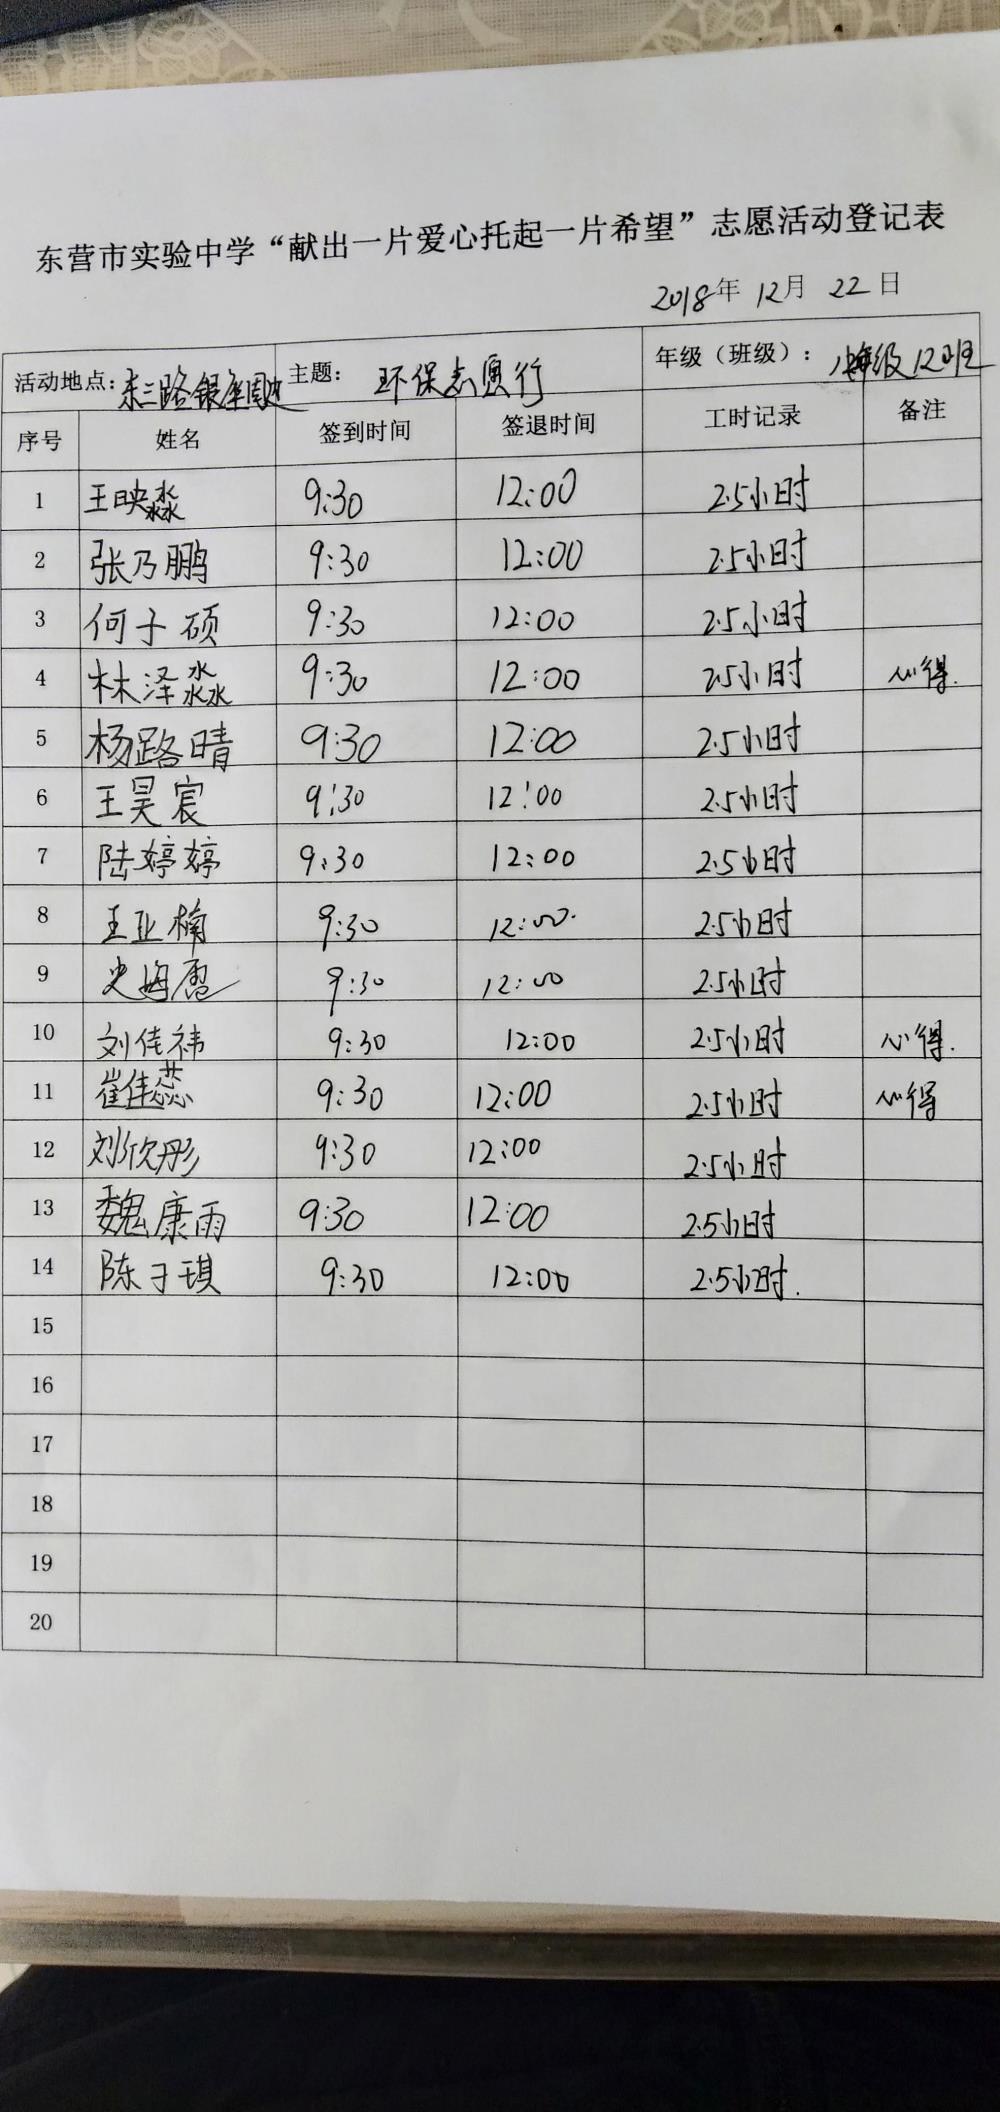 东营市实验中学“献出一片爱心托起一片希望”志愿活动登记表
2018年 12月 22日
活动地点：东三路银座周边 主题： 环保志愿行 年级（班级）： 八年级12班
序号 姓名 签到时间 签退时间 工时记录 备注
1 王映淼 9:30 12:00 2.5小时
2 张乃鹏 9:30 12:00 2.5小时
3 何子硕 9:30 12:00 2.5小时
4 林泽淼 9:30 12:00 2.5小时 心得.
5 杨路晴 9:30 12:00 2.5小时
6 王昊宸 9:30 12:00 2.5小时
7 陆婷婷 9:30 12:00 2.5小时
8 王亚楠 9:30 12:00. 2.5小时
9 史 9:30 12:00 2.5小时
10 刘佳祎 9:30 12:00 2.5小时 心得.
11 崔佳蕊 9:30 12:00 2.5小时 心得
12 刘欣彤 9:30 12:00 2.5小时
13 魏康雨 9:30 12:00 2.5小时
14 陈子琪 9:30 12:00 2.5小时.
15
16
17
18
19
20